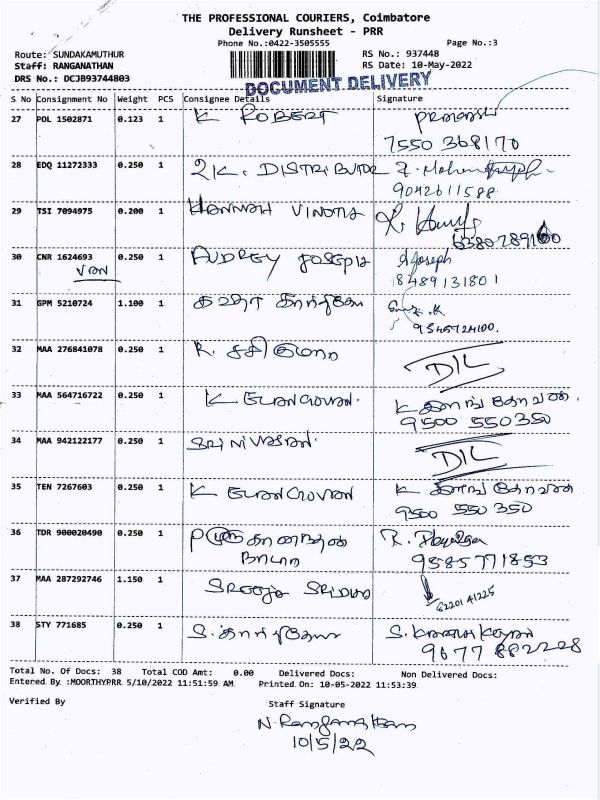 THE PROFESSIONAL COURIERS, Coimbatore
Delivery Runsheet - PRR
Phone No.:0422-3505555 Page No.:3
Route: SUNDAKAMUTHUR RS No.: 937448
Staff: RANGANATHAN RS Date: 10-May-2022
DRS No.: DCJB93744803
DOCUMENT DELIVERY
S No Consignment No Weight PCS Consignee Details Signature
27 POL 1502871 0.123 1 K ROBERT
7550 368170
28 EDQ 11272333 0.250 1 2K. DISTRIBUTOR
9042611588
29 TSI 7094975 0.200 1 HANNAH VINOTH
30 CNR 1624693 0.250 1 AUDREY JOSEPH Joseph
VAN 8489131801
31 GPM 5210724 1.100 1
9545724100.
32 MAA 276841078 0.250 1 R. சசிகுமார
DIL
33 MAA 564716722 0.250 1 K ELANGOVAN. K இளங்கோவன்.
9500 550350
34 MAA 942122177 0.250 1 SRINIVASAN.
DIL
35 TEN 7267603 0.250 1 K ELANGOVAN K இளங்கோவன்
9500 550 350
36 TDR 900020490 0.250 1
9585771853
37 MAA 287292746 1.150 1 SROOJA SRIDHAR
38 STY 771685 0.250 1 S. கார்த்திகேயன்
9677 882228
Total No. Of Docs: 38 Total COD Amt: 0.00 Delivered Docs: Non Delivered Docs:
Entered By :MOORTHYPRR 5/10/2022 11:51:59 AM Printed On: 10-05-2022 11:53:39
Verified By Staff Signature
N. Ranganathan
10/5/22